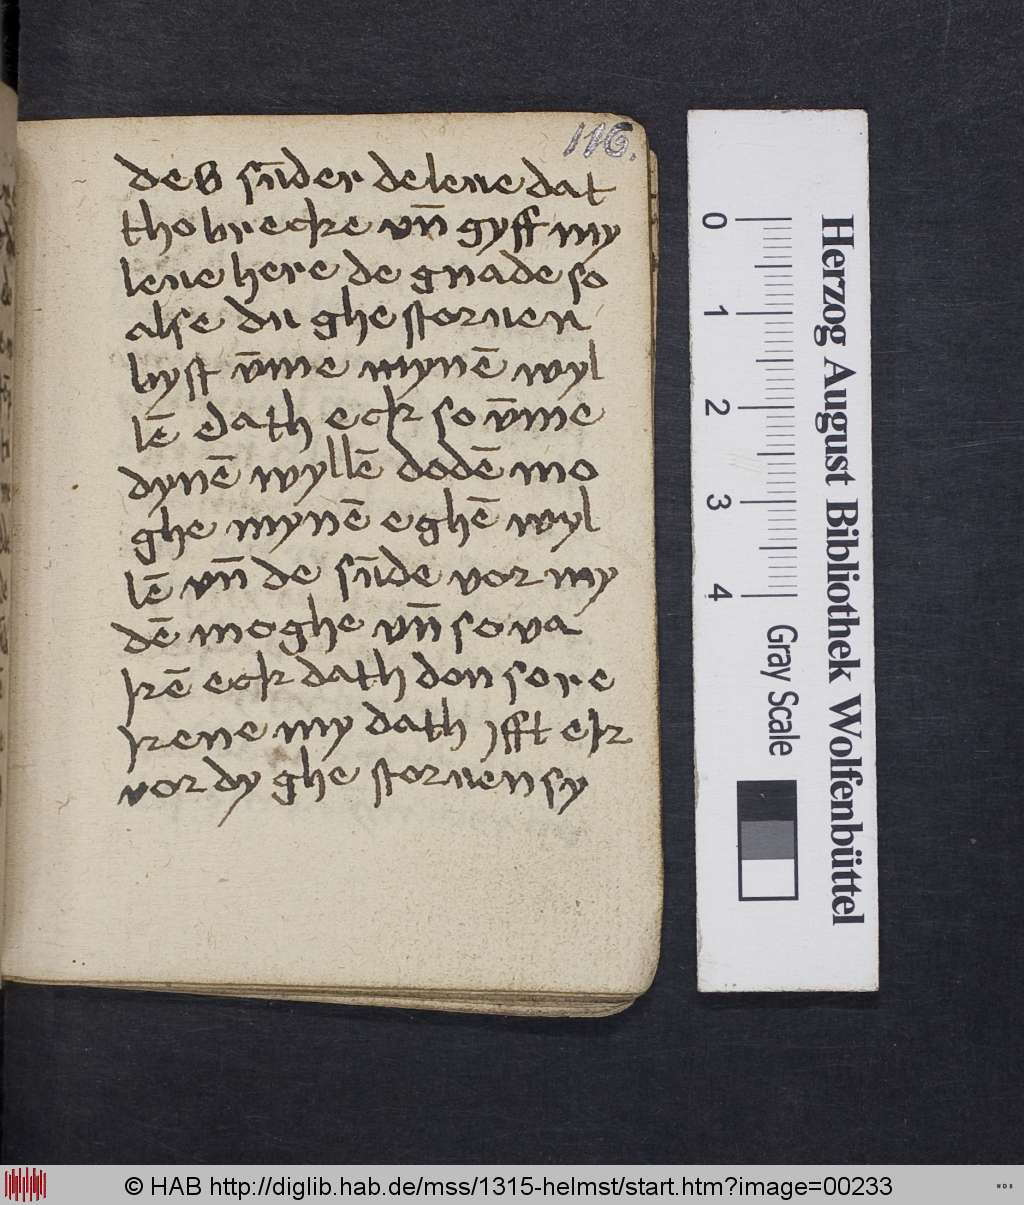 116.
des sūder de leue dat
tho brecke vn̄ gyff my
leue here de gnade so
alse du ghe storuen
byst v̄me mynē wyl
lē dath eck so v̄me
dynē wyllē dodē mo
ghe mynē eghē wyl
lē vn̄ de sūde vor my
dē moghe vn̄ so va
kē eck dath don so re
kene my dath yfft ek
vor dy ghe storuen sy
0
1
2
3
4
Gray Scale
Herzog August Bibliothek Wolfenbüttel
© HAB http://diglib.hab.de/mss/1315-helmst/start.htm?image=00233